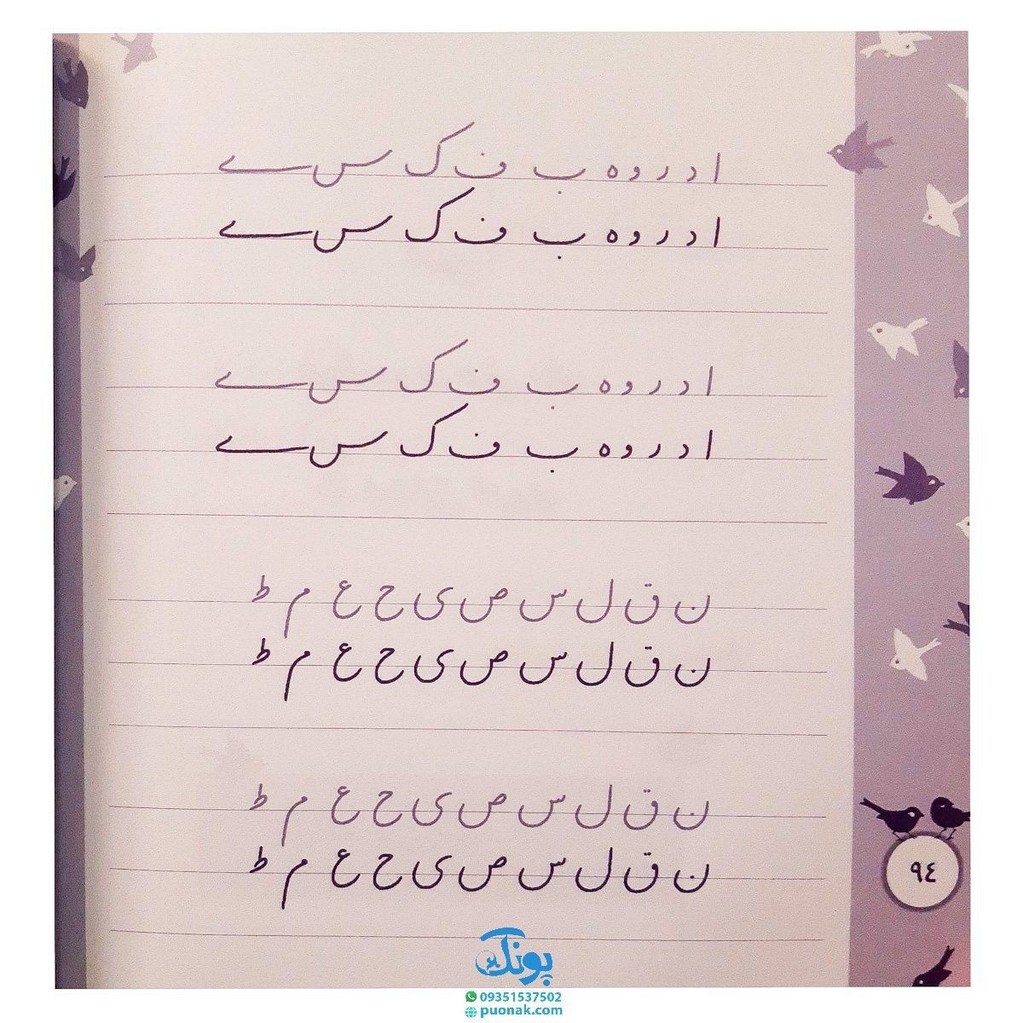 ا د ر و ه ب ف ک س ے
ا د ر و ه ب ف ک س ے
ا د ر و ه ب ف ک س ے
ا د ر و ه ب ف ک س ے
ن ق ل س ص ی ح ع م ط
ن ق ل س ص ی ح ع م ط
ن ق ل س ص ی ح ع م ط
ن ق ل س ص ی ح ع م ط
٩٤
پونک
09351537502
puonak.com